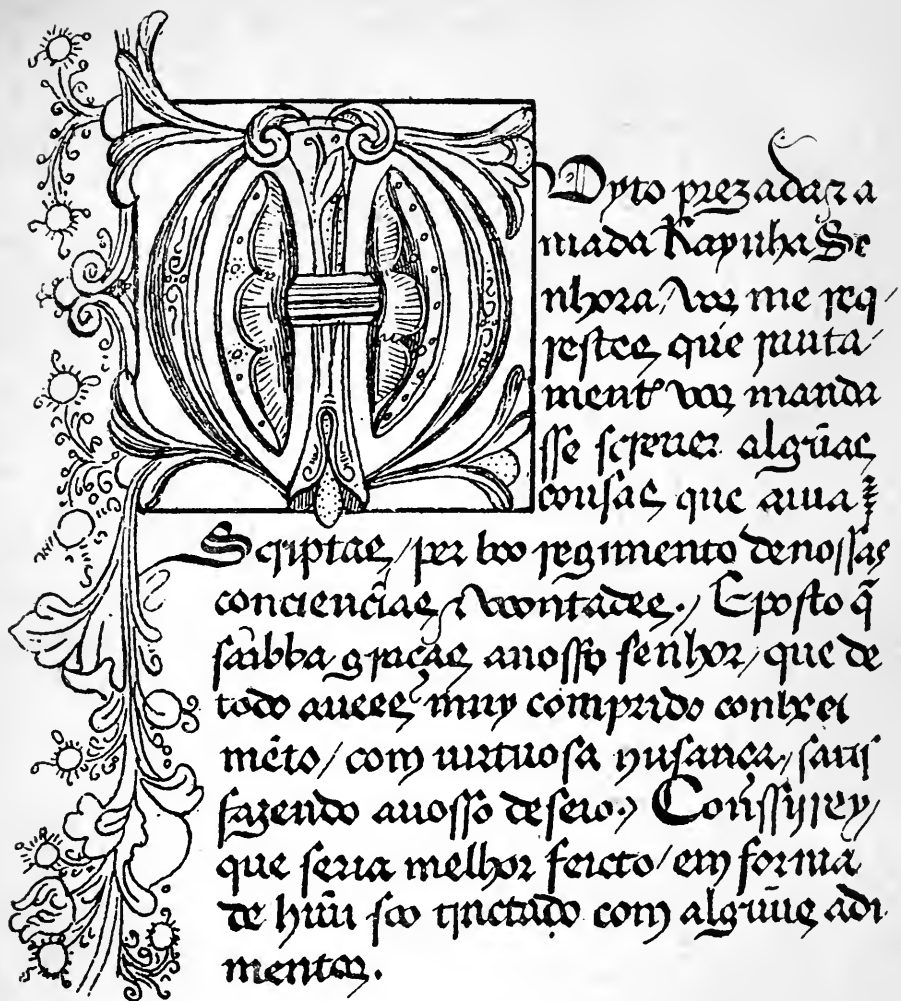 MUyto prezada ⁊ a
mada Raynha Se
nhora, vos me req
restes que iunta
mente vos manda
sse screuer algũas
cousas que auia
Scriptas / per boo regimento denossas
conciencias ⁊ voontades./ E posto q̃
saibba graças anosso senhor / que de
todo auees muy comprido conhecí
mẽto / com uirtuosa husança, satis
fazendo auosso deseio./ Conssijrey /
que seria melhor feicto / em forma
de hũu soo tractado com algũus adi
mentos.